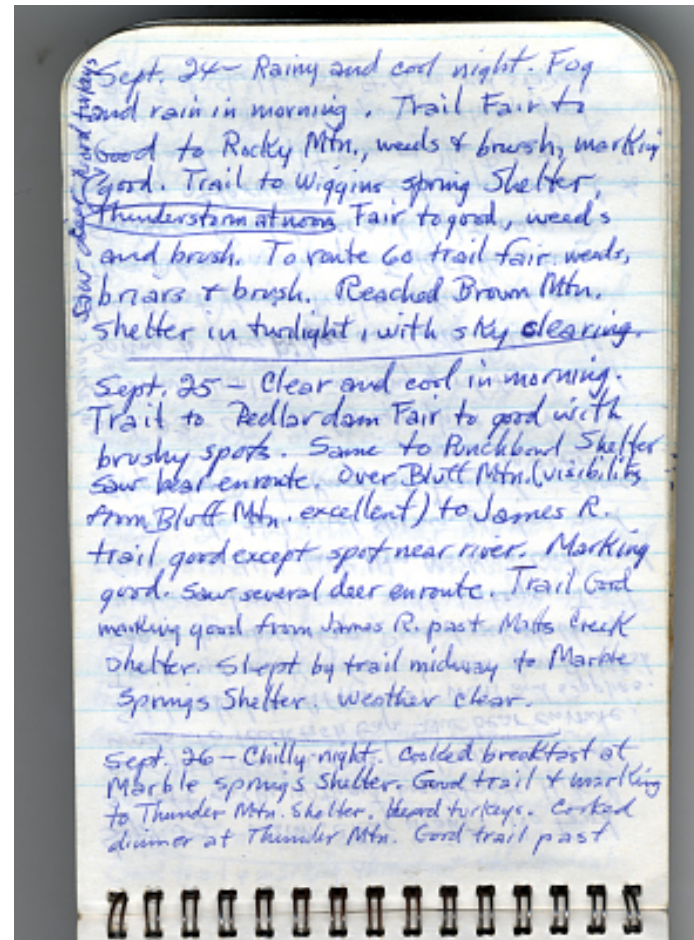 Sept. 24 - Rainy and cool night. Fog
and rain in morning. Trail Fair to
Good to Rocky Mtn., weeds & brush, marking
good. Trail to Wiggins spring Shelter,
Thunderstorm at noon Fair to good, weeds
and brush. To route 60 trail fair. weeds,
briars & brush. Reached Brown Mtn.
shelter in twilight, with sky clearing.
Saw deer, heard turkeys
Sept. 25 - Clear and cool in morning.
Trail to Pedlar dam Fair to good with
brushy spots. Same to Punchbowl Shelter
saw bear enroute. Over Bluff Mtn. (visibility
from Bluff Mtn. excellent) to James R.
trail good except spot near river. Marking
good. Saw several deer enroute. Trail Good
marking good from James R. past Matts Creek
Shelter. Slept by trail midway to Marble
Springs Shelter. Weather clear.
Sept. 26 - Chilly night. Cooked breakfast at
Marble springs Shelter. Good trail & marking
to Thunder Mtn. Shelter. Heard turkeys. Cooked
dinner at Thunder Mtn. Good trail past